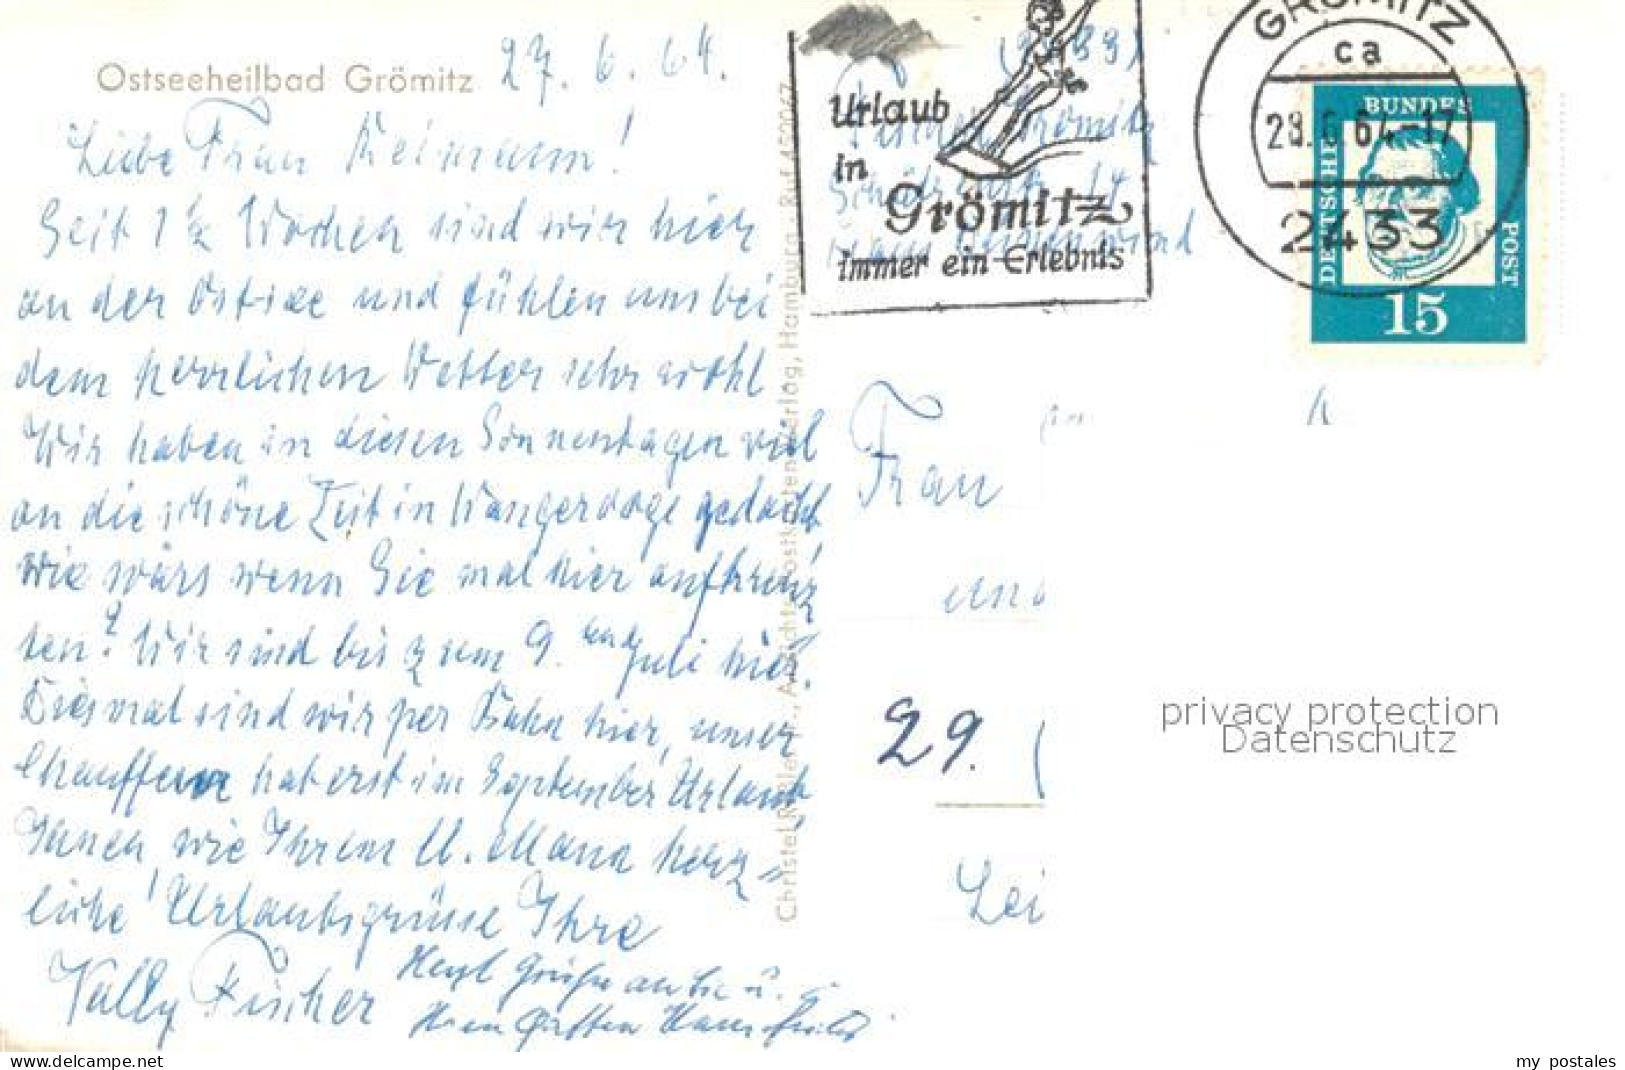 Ostseeheilbad Grömitz 27.6.64.
Liebe Frau Reimann!
Seit 1 1/2 Wochen sind wir hier
an der Ostsee und fühlen uns bei
dem herrlichen Wetter sehr wohl
Wir haben in diesen Sonnentagen viel
an die schöne Zeit in Wangerooge gedacht
wie wärs wenn Sie mal hier aufkreuz
ten? Wir sind bis zum 9. Juli hier.
Diesmal sind wir per Bahn hier, unser
Chauffeur hat erst im September Urlaub
Ihnen, wie Ihrem Mann herz=
liche Urlaubsgrüsse Ihre
Vally Fischer
Herzl Grüße an Sie u.
Christel
Ansichtspostkartenverlag, Hamburg, Ruf
Urlaub
in
Grömitz
immer ein Erlebnis
GRÖMITZ
ca
28.6.64-17
2433
DEUTSCHE
BUNDES
POST
15
Frau
und
29.
Lei
privacy protection
Datenschutz
my postales